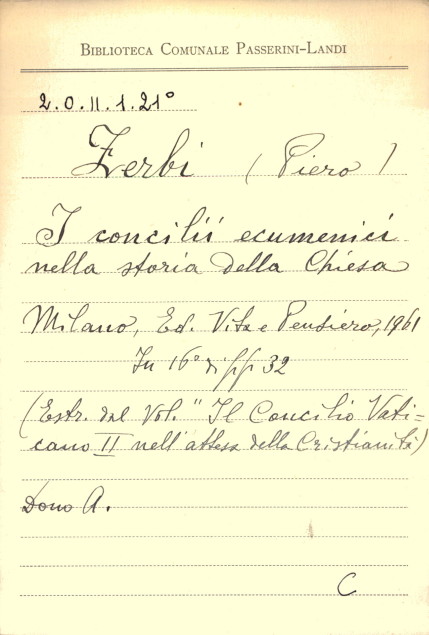 BIBLIOTECA COMUNALE PASSERINI-LANDI
2.O.II.1.21°
Zerbi (Piero)
I concilii ecumenici
nella storia della Chiesa
Milano, Ed. Vita e Pensiero, 1961
In 16° di pp 32
(Estr. dal Vol. "Il Concilio Vati-
cano II nell'attesa della Cristianità)
Dono A.
C